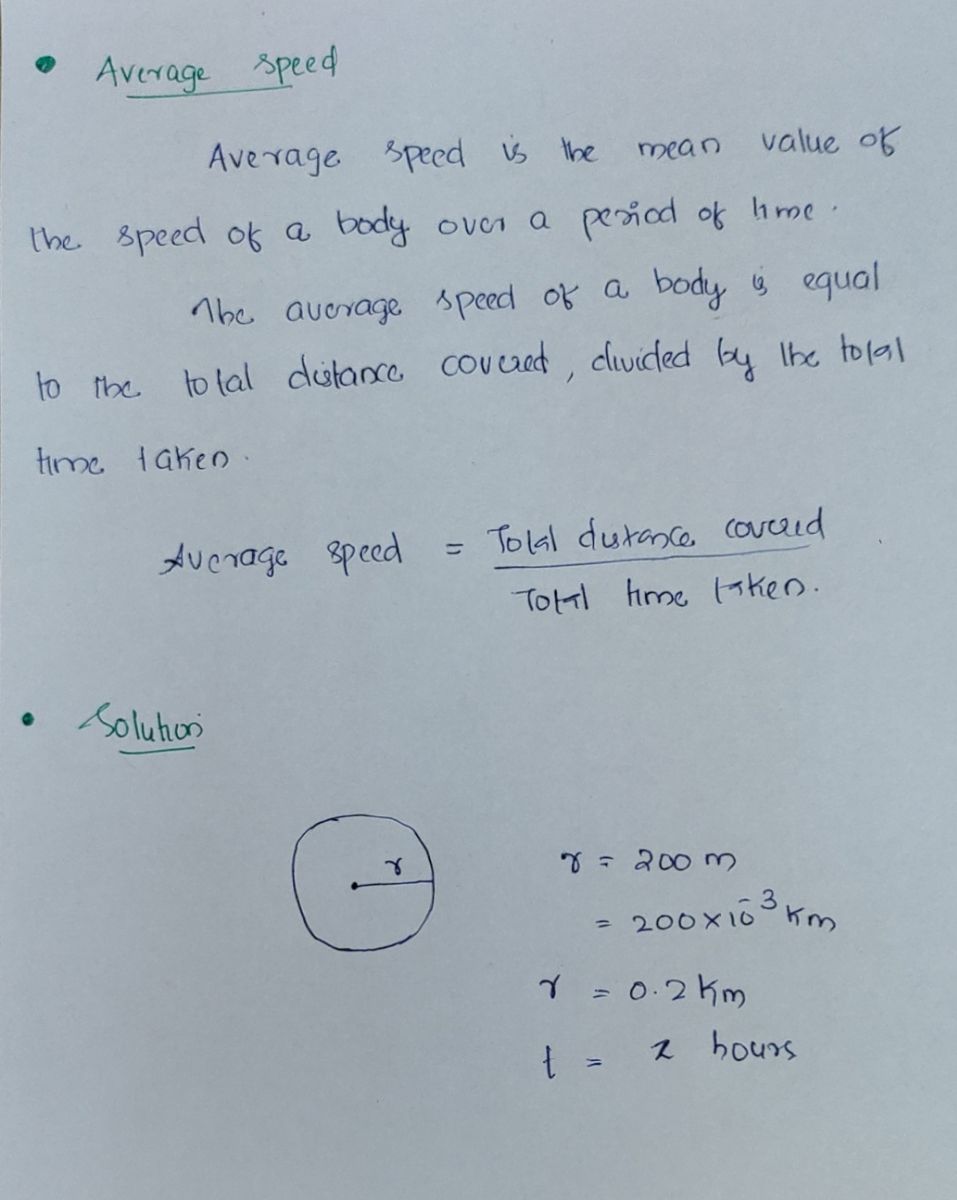 • Average speed
Average speed is the mean value of
the speed of a body over a period of time.
The average speed of a body is equal
to the total distance covered, divided by the total
time taken.
Average speed = Total distance covered
Total time taken.
• Solution
r
r = 200 m
= 200×10⁻³ Km
r = 0.2 Km
t = 2 hours